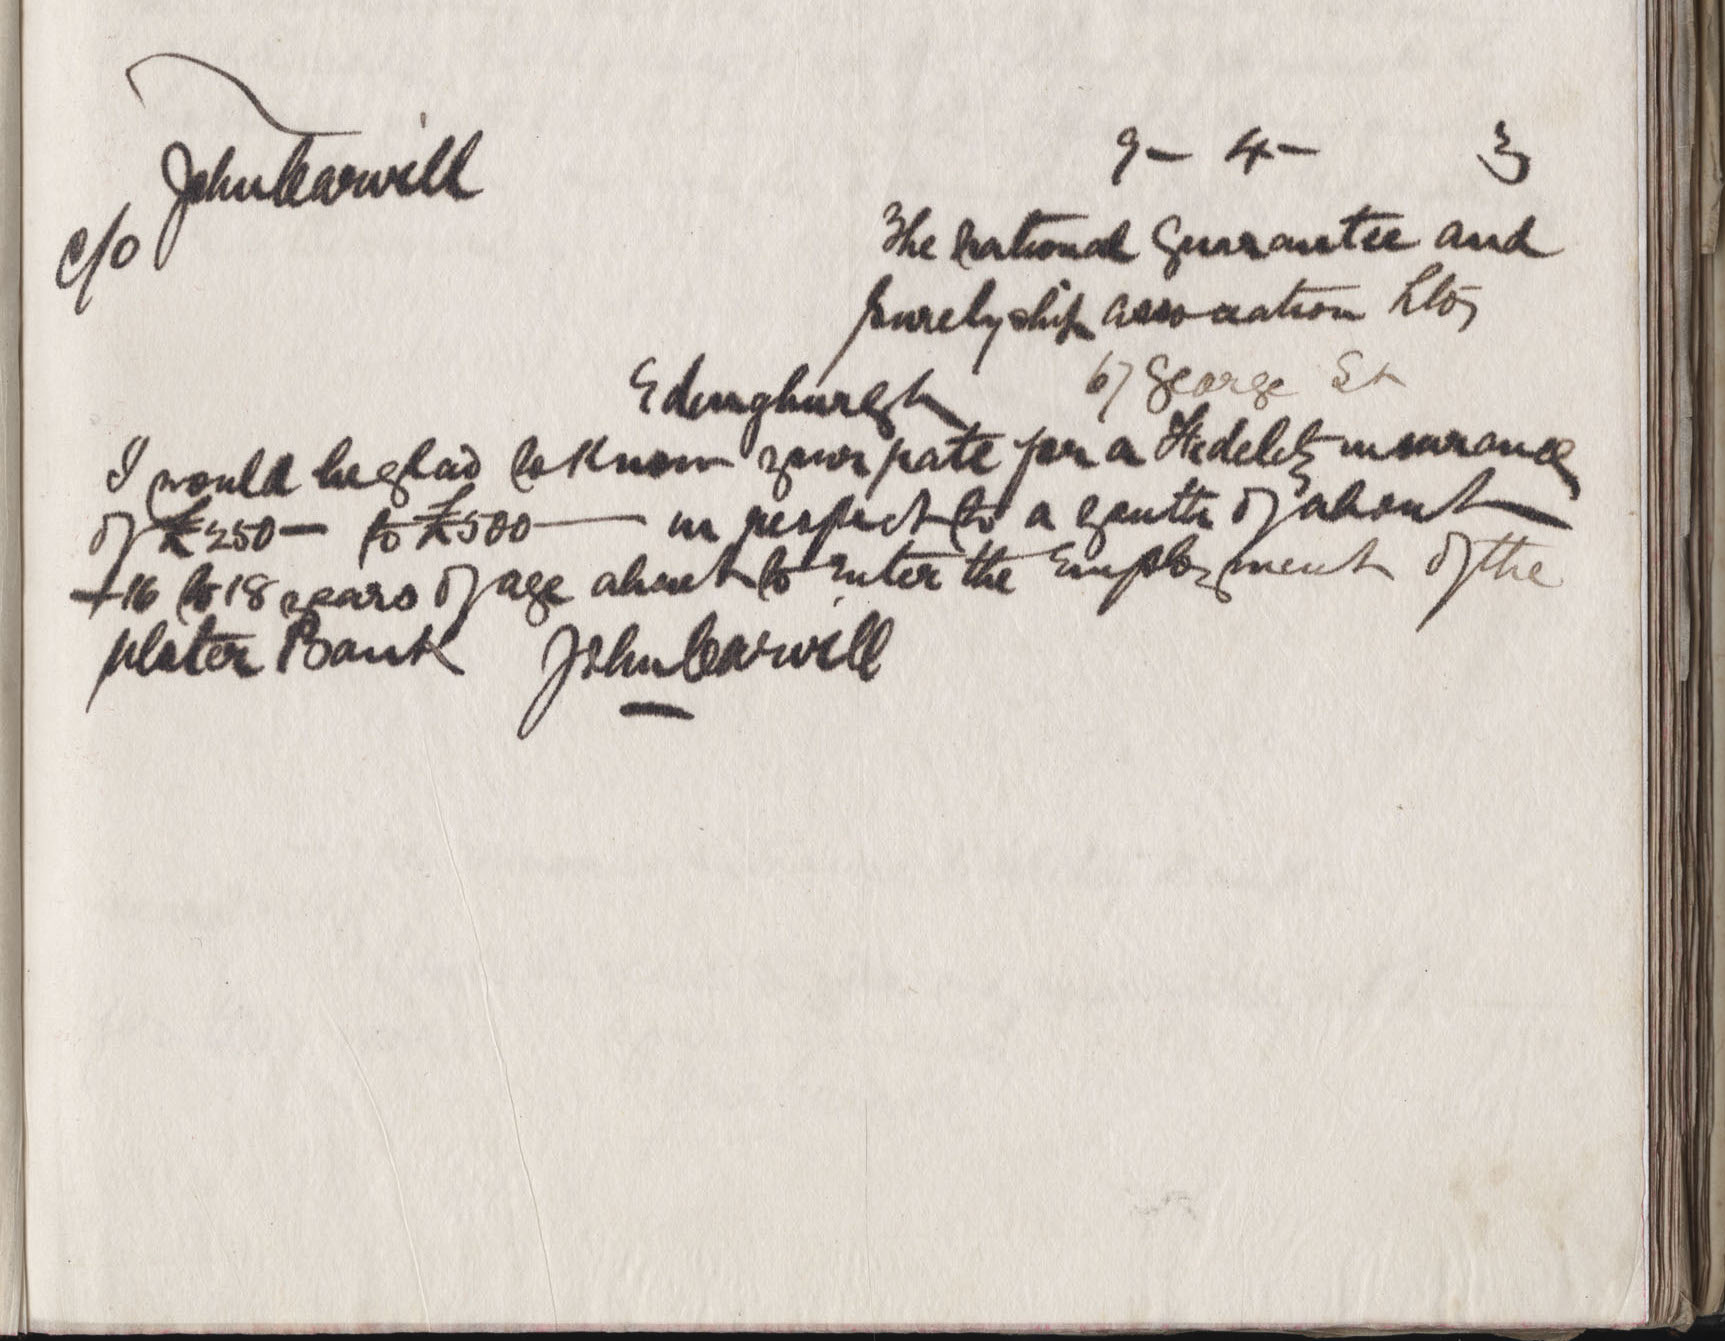 John Carvill
9 - 4 - 3
c/o
The National Guarantee and
Suretyship Association Ltd,
Edinghurgh 67 George St
I would be glad to know your rate for a Fidelity insurance
of £250 - to £500 - in respect to a youth of about
16 to 18 years of age about to enter the Employment of the
Ulster Bank John Carvill